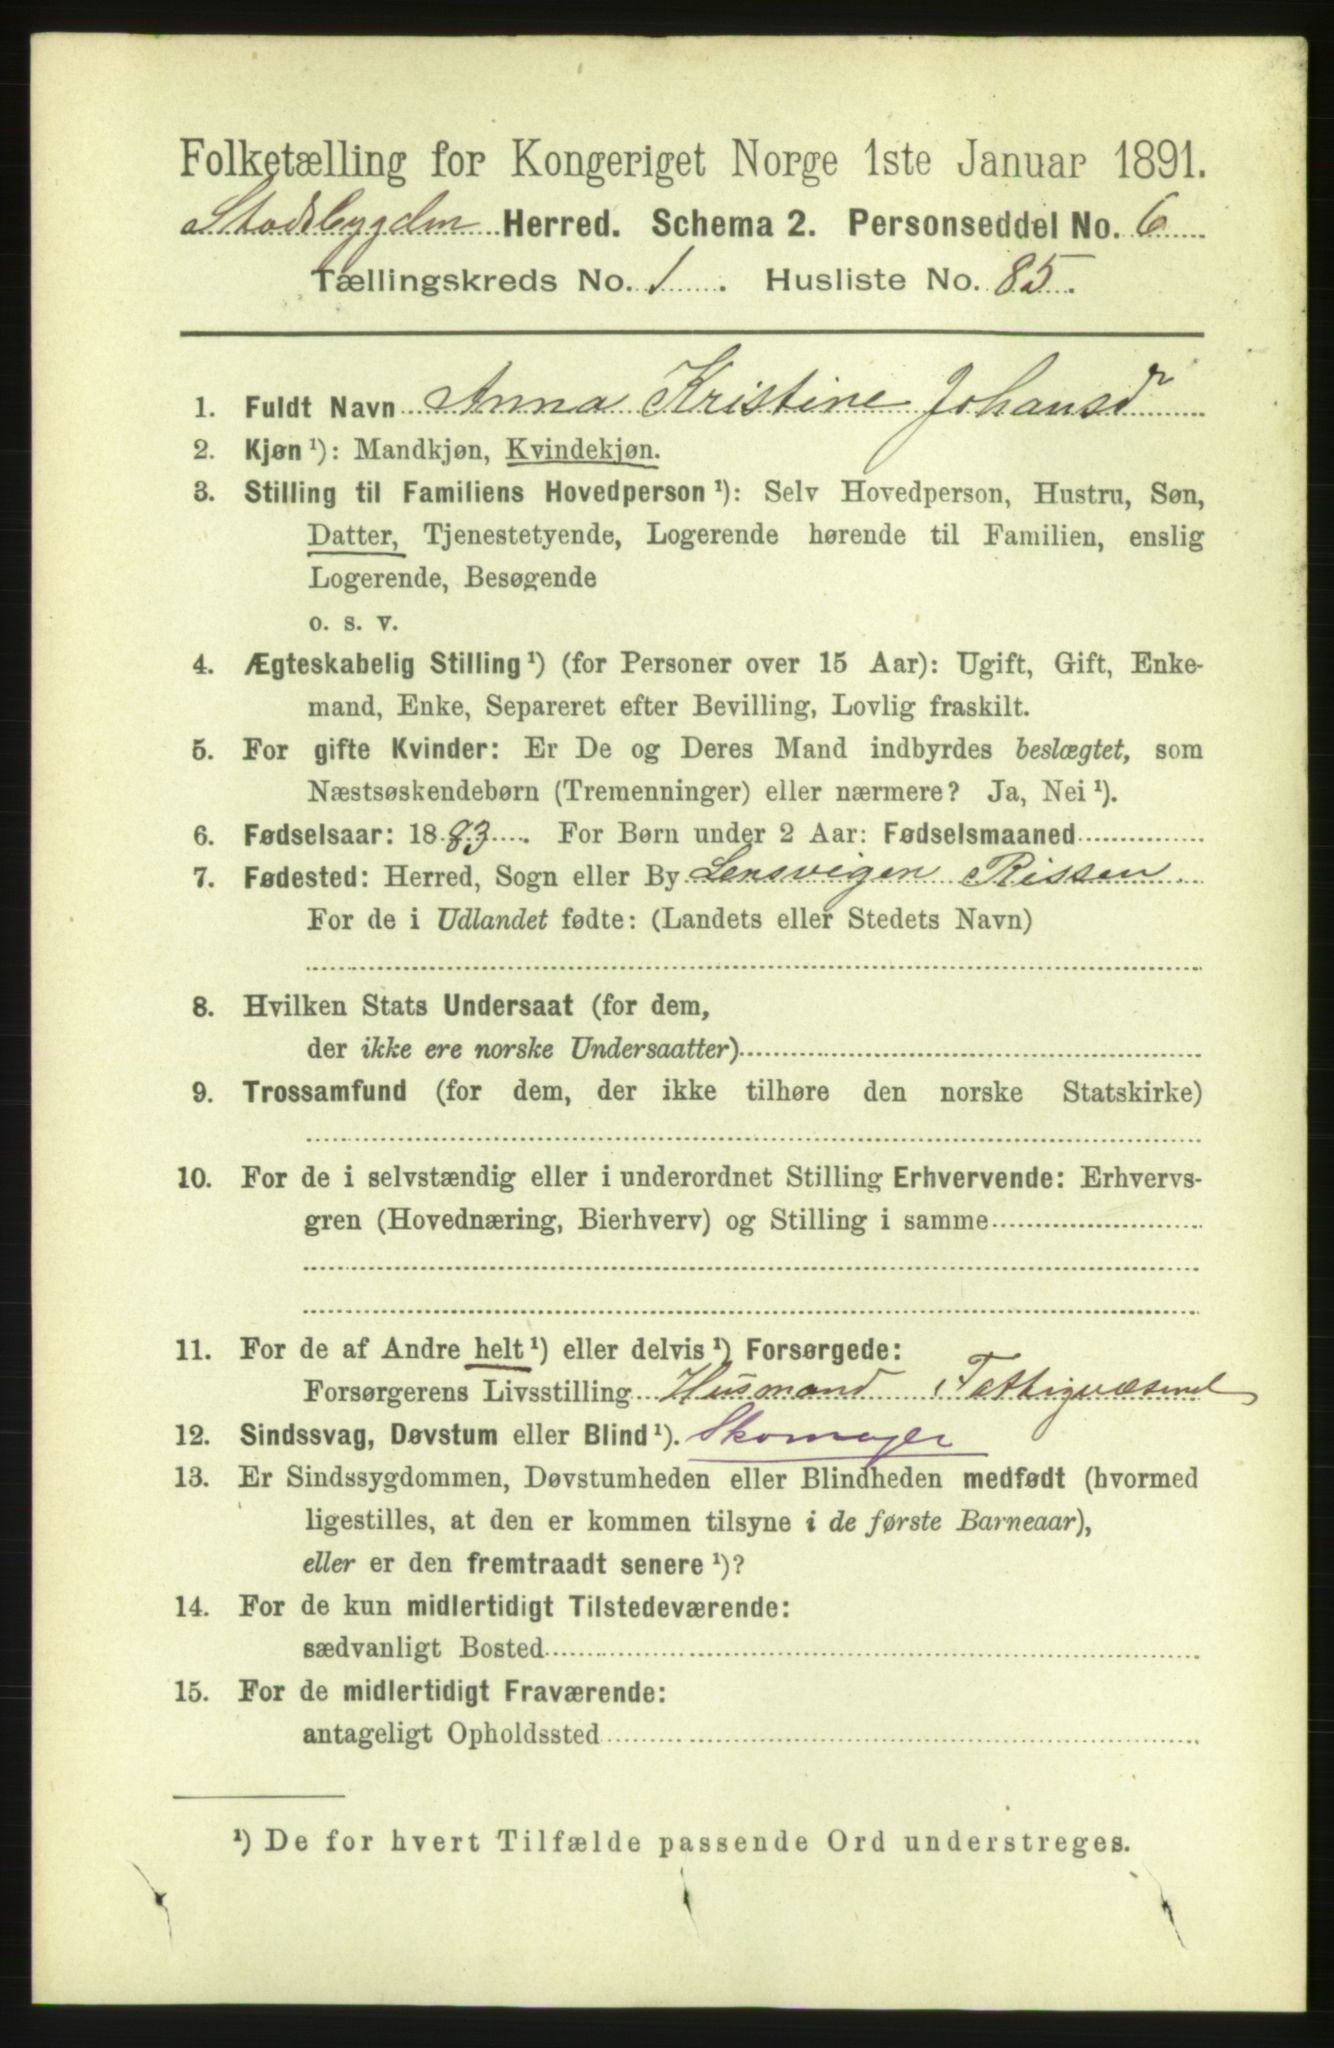 Folketælling for Kongeriget Norge 1ste Januar 1891.
Stadsbygden Herred. Schema 2. Personseddel No. 6
Tællingskreds No. 1. Husliste No. 85.
1. Fuldt Navn Anna Kristine Johansdr
2. Kjøn ¹): Mandkjøn, Kvindekjøn.
3. Stilling til Familiens Hovedperson ¹): Selv Hovedperson, Hustru, Søn,
Datter, Tjenestetyende, Logerende hørende til Familien, enslig
Logerende, Besøgende
o. s. v.
4. Ægteskabelig Stilling ¹) (for Personer over 15 Aar): Ugift, Gift, Enke-
mand, Enke, Separeret efter Bevilling, Lovlig fraskilt.
5. For gifte Kvinder: Er De og Deres Mand indbyrdes beslægtet, som
Næstsøskendebørn (Tremenninger) eller nærmere? Ja, Nei ¹).
6. Fødselsaar: 1883. For Børn under 2 Aar: Fødselsmaaned
7. Fødested: Herred, Sogn eller By Lensvigen Rissen
For de i Udlandet fødte: (Landets eller Stedets Navn)
8. Hvilken Stats Undersaat (for dem,
der ikke ere norske Undersaatter)
9. Trossamfund (for dem, der ikke tilhøre den norske Statskirke)
10. For de i selvstændig eller i underordnet Stilling Erhvervende: Erhvervs-
gren (Hovednæring, Bierhverv) og Stilling i samme
11. For de af Andre helt ¹) eller delvis ¹) Forsørgede:
Forsørgerens Livsstilling Husmand, Fattigvæsenet
12. Sindssvag, Døvstum eller Blind ¹). Skomager
13. Er Sindssygdommen, Døvstumheden eller Blindheden medfødt (hvormed
ligestilles, at den er kommen tilsyne i de første Barneaar),
eller er den fremtraadt senere ¹)?
14. For de kun midlertidigt Tilstedeværende:
sædvanligt Bosted
15. For de midlertidigt Fraværende:
antageligt Opholdssted
¹) De for hvert Tilfælde passende Ord understreges.